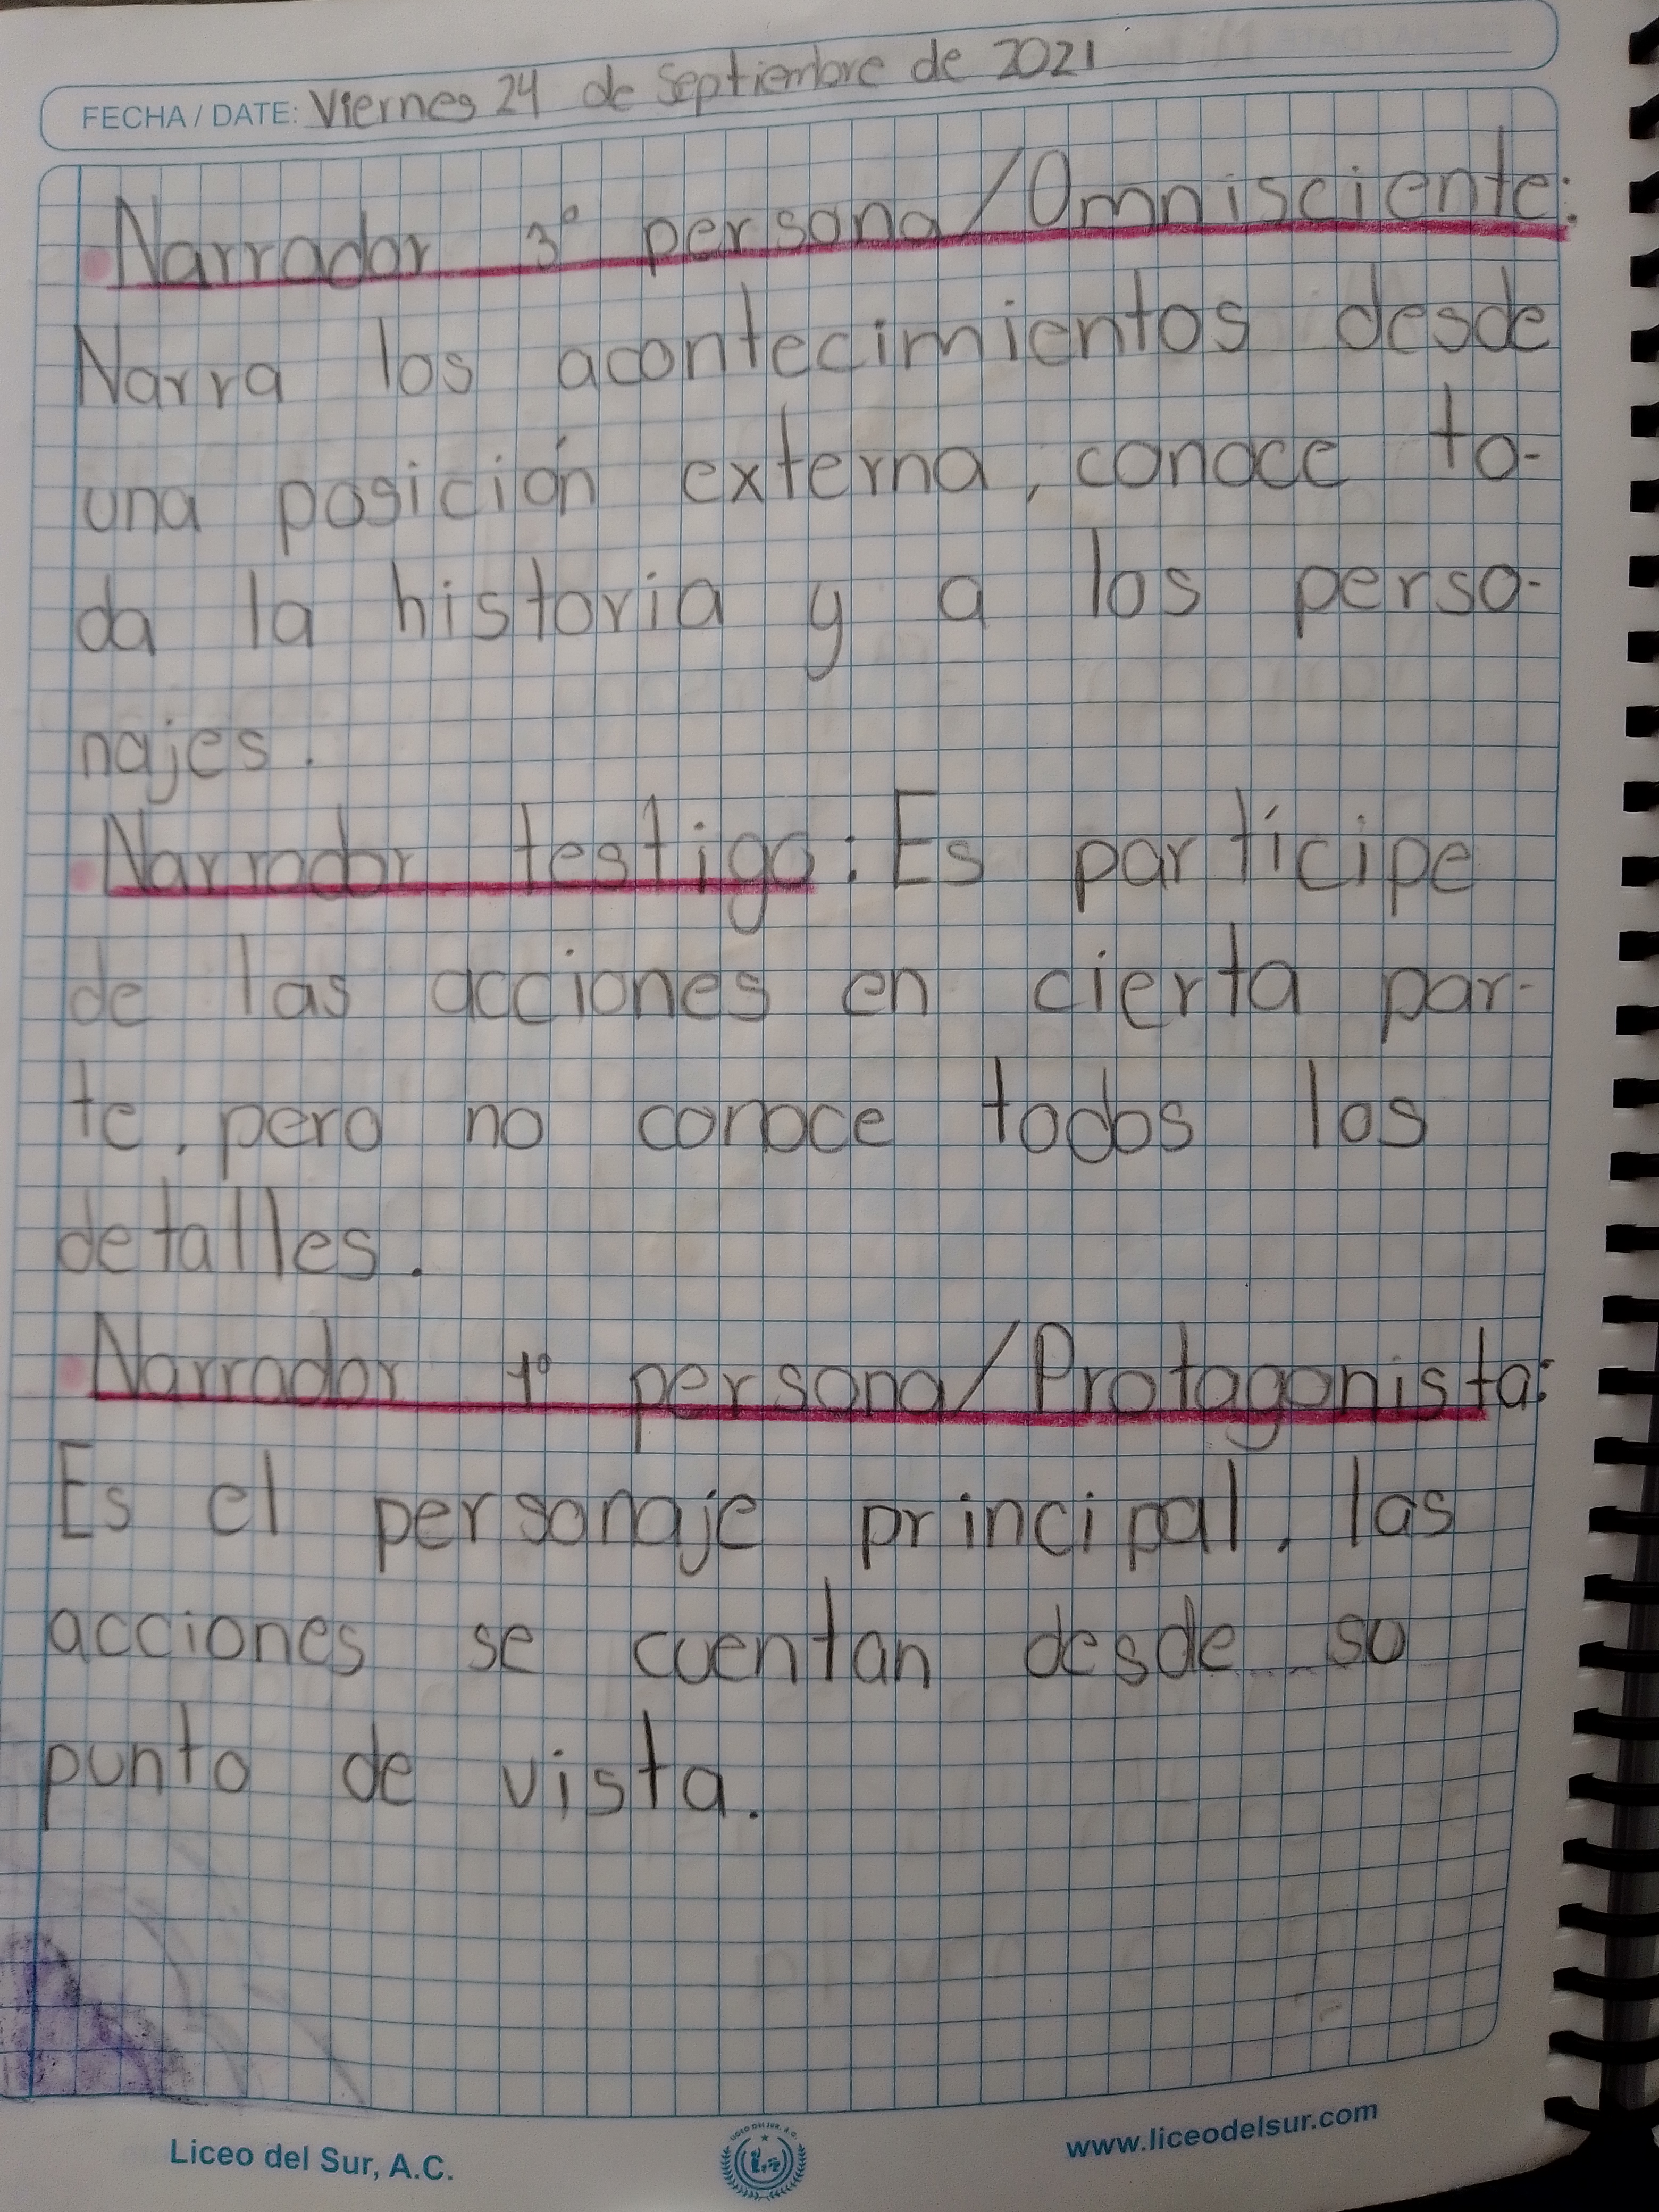 FECHA / DATE: Viernes 24 de Septiembre de 2021
• Narrador 3° persona/Omnisciente:
Narra los acontecimientos desde
una posición externa, conoce to-
da la historia y a los perso-
najes.
• Narrador testigo: Es partícipe
de las acciones en cierta par-
te, pero no conoce todos los
detalles.
• Narrador 1° persona/Protagonista:
Es el personaje principal, las
acciones se cuentan desde su
punto de vista.
Liceo del Sur, A.C.
LICEO DEL SUR, A.C.
www.liceodelsur.com